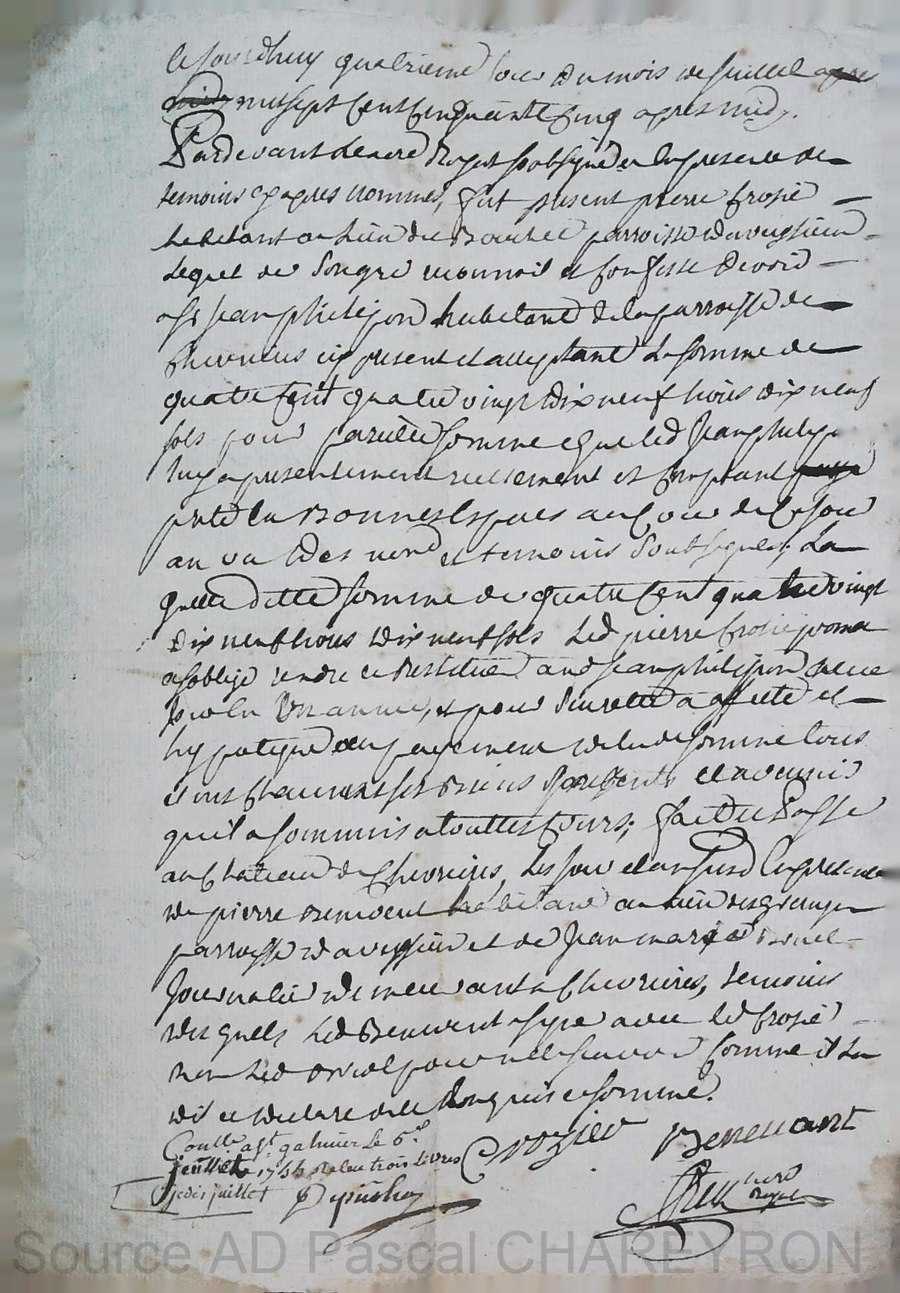 ce Jourdhuy quatrieme Jour du mois de Juillet apre
midy mil sept cent cinquante cinq apres midy.
Pardevant le no.re Royal soubsigné et la presence de
temoins cy apres nommés, fut present pierre Crosié
habitant au lieu du parroisse d'aveysieu
Lequel de son gré reconnoit et confesse devoir
a s.r Jean philipon habitant de la parroisse de
chevrieres icy present et acceptant La somme de
quatre cent quatre vingt dix neuf livres dix neuf
sols pour pareille somme que led Jean philipon
luy a presentement reellement et comptant
preté en Bonnes Especes au Cour de ce Jour
au vu des no.re et temoins soubsignes, La
quelle ditte somme de quatre cent quatre vingt
dix neuf livres dix neuf sols led pierre Crosié promet
et s'oblige rendre et restituer aud Jean philipon
Jour en un année, et pour seurette a affecté et
hypotequé au payement de lad somme tous
et uns chacuns ses Biens presents et avenir
qu'il a soummis a touttes Cours; fait et Passé
au chateau de chevrieres, les Jour et an susd En presence
de pierre Benevent habitant au lieu des granges
parroisse d'aveysieu et de Jean marie
Journalier demeurant a Chevrieres, temoins
desquels led Benevent a signé avec led Crosié
non led pour ne le sçavoir comme il la
dit et declaré de ce Enquis et sommé.
Crozier Benevant
Con.lle a s.t galmier le 6.e
Juillet 1755 Relu trois Livres
je dis juillet Depuishay
no.re Royal